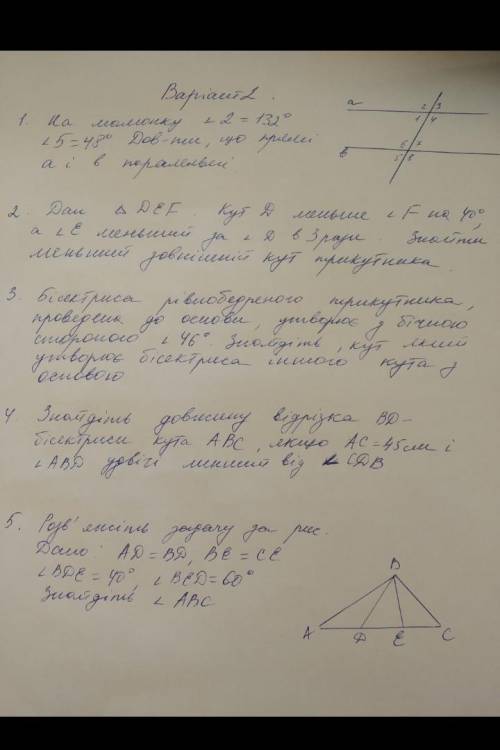 Варіант 2.
1. На малюнку ∠2 = 132°
∠5 = 48° Дов-ти, що прямі
a і в паралельні
a
2 3
1 4
в
6 7
5 8
2. Дан △ DEF. Кут D меньше ∠F на 40°,
а ∠E меньший за ∠D в 3 рази. Знайти
меньший зовнішній кут трикутника.
3. Бісектриса рівнобедреного трикутника,
проведена до основи, утворює з бічною
стороною ∠46°. Знайдіть, кут який
утворює бісектриса іншого кута з
основою
4. Знайдіть довжину відрізка BD-
бісектриси кута ABC, якщо AC = 45см і
∠ABD удвічі менший від ∠CDB
5. Розв'яжіть задачу за рис.
Дано: AD = BD, BE = CE
∠BDE = 40°, ∠BED = 60°
Знайдіть ∠ABC
B
A D E C